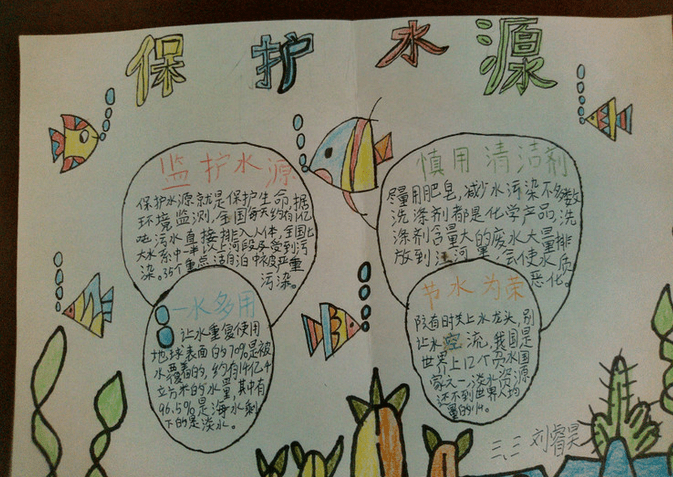 保护水源
监护水源
保护水源就是保护生命,据
环境监测,全国每天约有1亿
吨污水直接排入人体,全国七
大水系中一半以上河段受到污
染。35个重点湖泊中被严重
污染。
慎用清洁剂
尽量用肥皂,减少水污染不多数
洗涤剂都是化学产品,洗
涤剂含量大的废水大量排
放到江河里,会使水质
恶化。
一水多用
让水重复使用
地球表面的70%是被
水覆着的,约有14亿千
立方米的水量,其中有
96.5%是海水剩
下的是淡水。
节水为荣
随时关上水龙头,别
让水空流,我国是
世界上12个贫水国
家之一,淡水资源
还不到世界人均
量的1/4。
三、三 刘睿昊